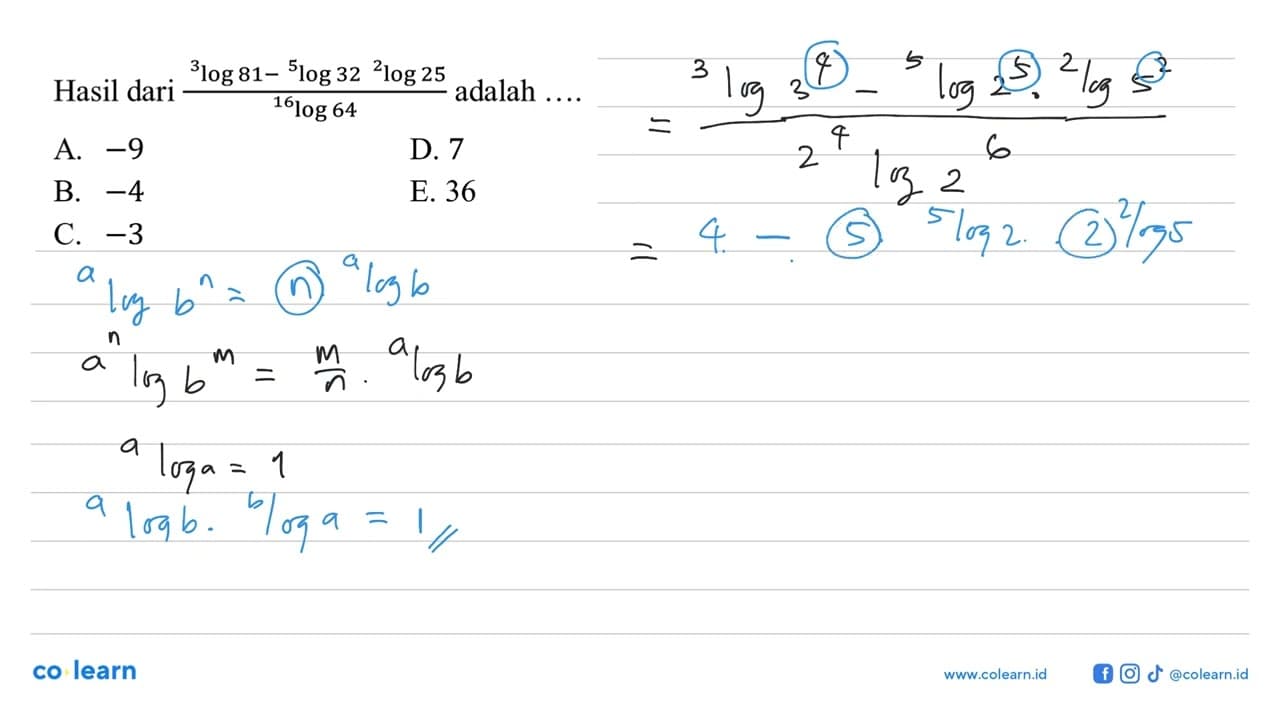 Hasil dari (³log 81 − ⁵log 32 ²log 25) / (¹⁶log 64) adalah ….
A. −9
B. −4
C. −3
D. 7
E. 36
= (³log 3⁴ − ⁵log 2⁵ . ²log 5²) / (2⁴ log 2⁶)
= 4 − 5 ⁵log 2 . 2 ²log 5
ᵃlog bⁿ = n ᵃlog b
aⁿ log bᵐ = m/n . ᵃlog b
ᵃlog a = 1
ᵃlog b . ᵇlog a = 1 //
co learn
www.colearn.id
@colearn.id